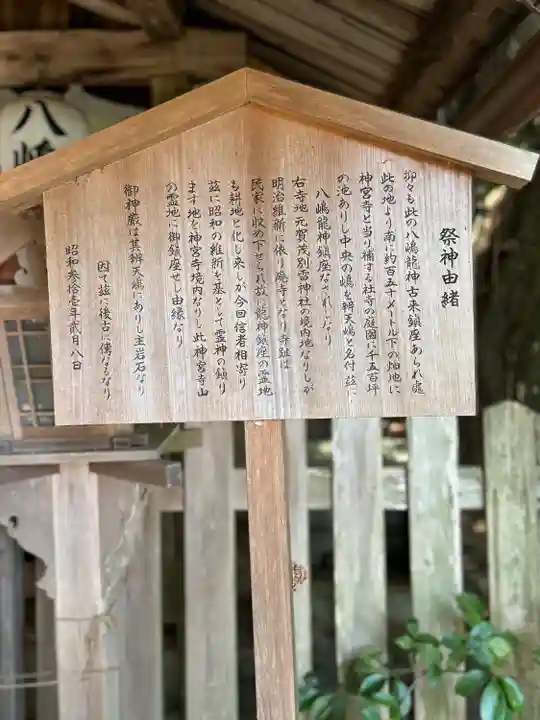 祭神由緒
抑々も此の八嶋龍神古来鎮座あられ處
此の地より南に約百五十メートル下の畑地に
神宮寺と当り稱する社寺の庭園に千五百坪
の池ありし中央の嶋を辨天嶋と名付茲に
八嶋龍神鎮座なされしなり
右寺地元賀茂別雷神社の境内地なりしが
明治維新に依り廃寺となり寺趾は
民家に収め下せられ故に龍神鎮座の霊地
も耕地と化し来しが今回信者相寄り
茲に昭和の維新を基として霊神の鎮り
ます地を神宮寺境内なりし此神宮寺山
の霊地に御鎮座せし由縁なり
御神巌は其辨天嶋にありし主岩石なり
因て茲に後古に傳なるなり
昭和参拾壱年弐月八日
八嶋